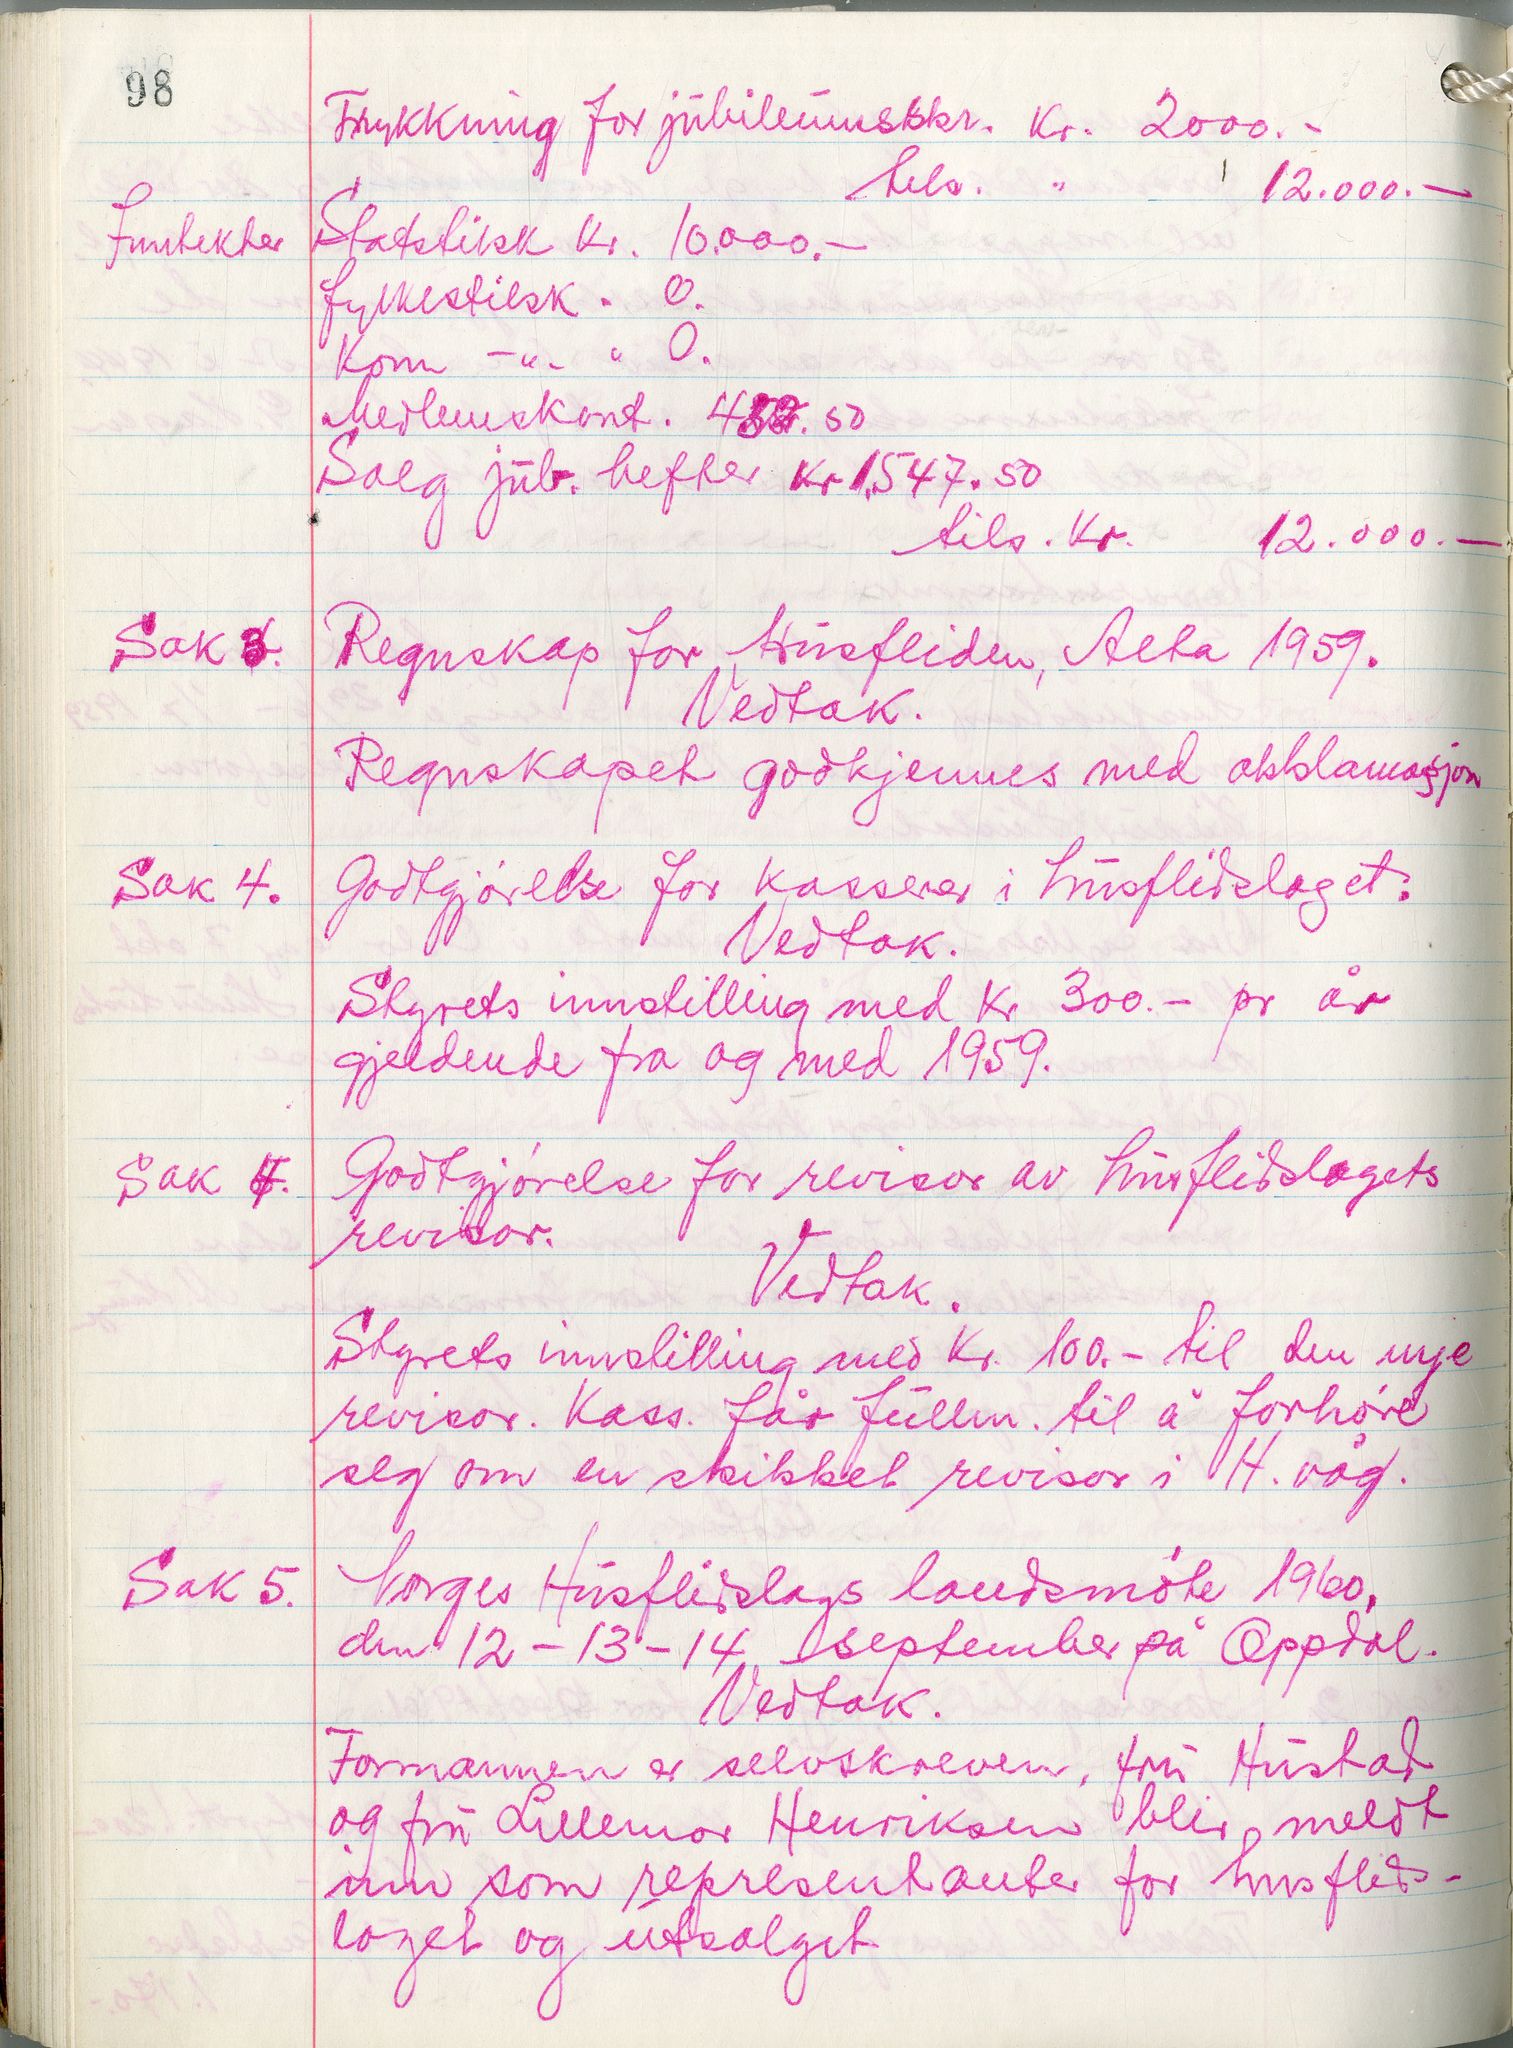 98
Trykkning for jubileumsskr. Kr. 2000.-
tils. " 12.000.-
Inntekter Statstilsk Kr. 10.000.-
fylkestilsk. 0.
Kom -"- " 0.
Medlemskont. 452.50
Salg jub. hefter kr 1.547.50
tils. Kr. 12.000.-
Sak 3. Regnskap for Husfliden, Alta 1959.
Vedtak.
Regnskapet godkjennes med akklamasjon
Sak 4. Godtgjørelse for kasserer i husflidslaget:
Vedtak.
Styrets innstilling med Kr 300.- pr år
gjeldende fra og med 1959.
Sak 4. Godtgjørelse for revisor av husflidslagets
revisor.
Vedtak.
Styrets innstilling med Kr. 100.- til den nye
revisor. Kass. får fullm. til å forhøre
seg om en skikket revisor i H. våg.
Sak 5. Norges Husflidslags landsmøte 1960,
den 12-13-14 september på Oppdal.
Vedtak.
Formannen er selvskreven, fru Hustad
og fru Lillemor Henriksen blir meldt
inn som representanter for husflids-
laget og utsalget